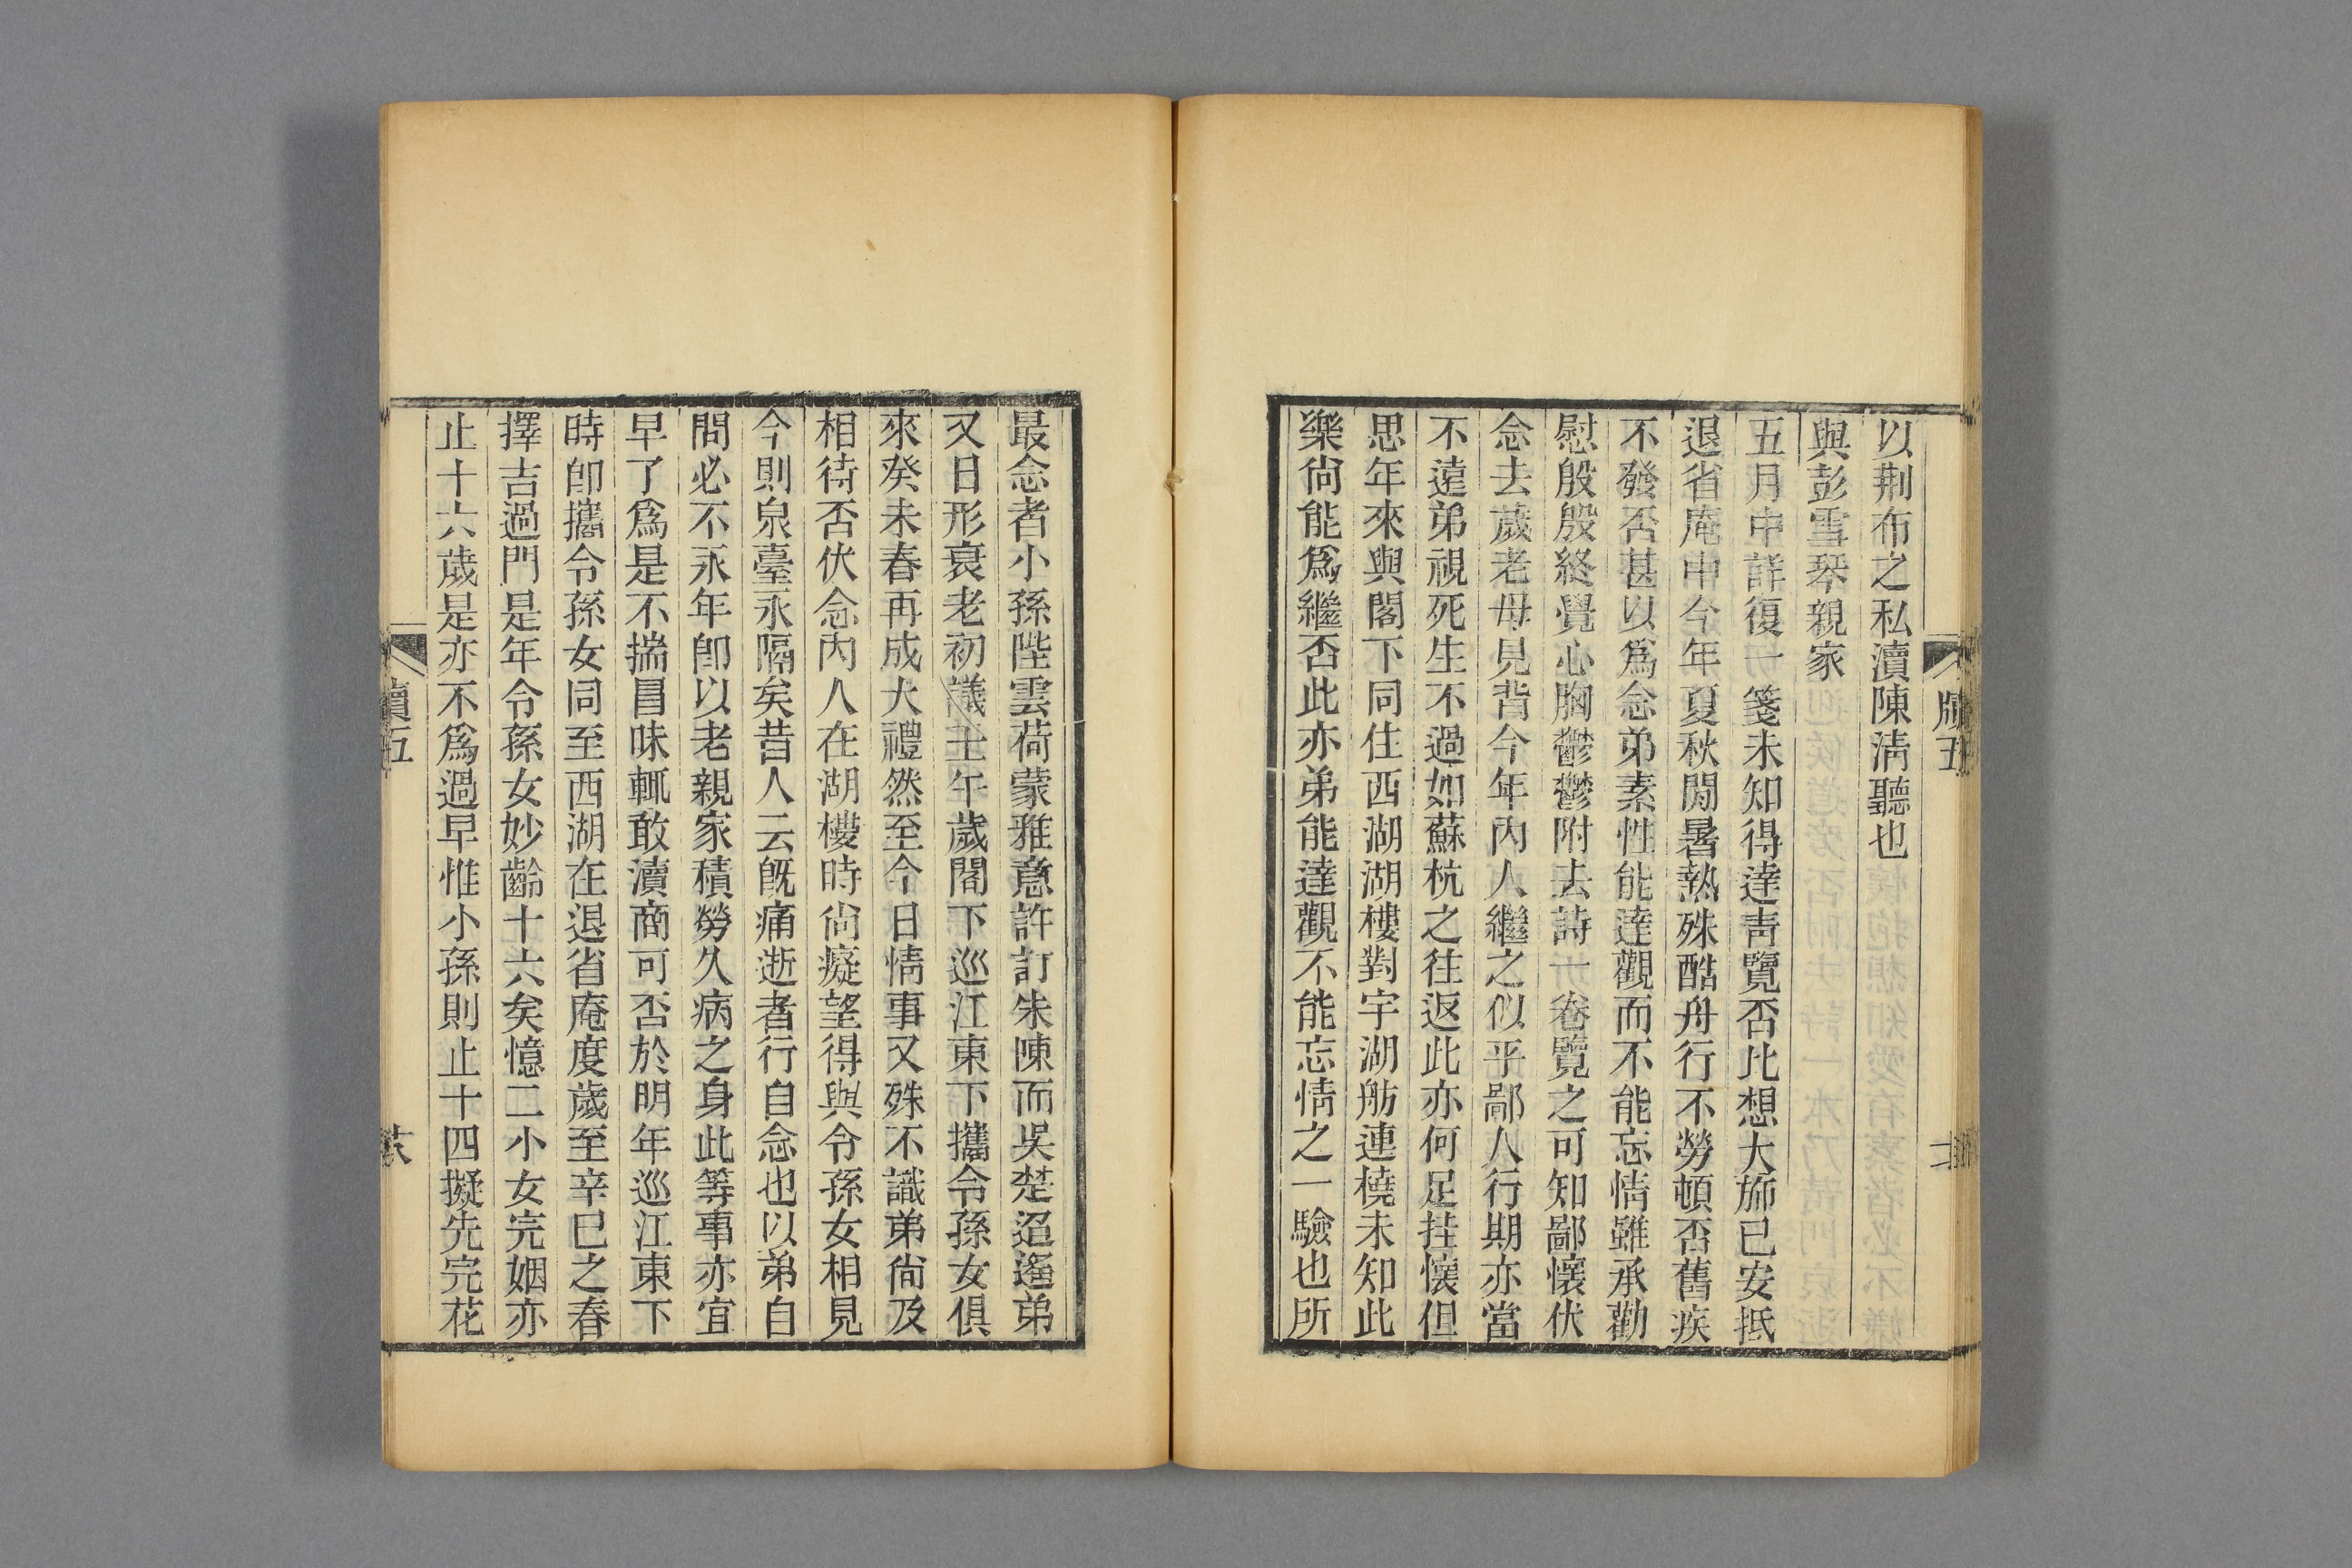 以荆布之私瀆陳淸聽也
與彭雪琴親家
五月中詳復一箋未知得達靑覽否比想大斾已安抵
退省庵中今年夏秋閒暑熱殊酷舟行不勞頓否舊疾
不發否甚以爲念弟素性能達觀而不能忘情雖承勸
慰殷殷終覺心胸鬱鬱附去詩一卷覽之可知鄙懷伏
念去歲老母見背今年內人繼之似乎鄙人行期亦當
不遠弟視死生不過如蘇杭之往返此亦何足挂懷但
思年來與閣下同住西湖湖樓對宇湖舫連橈未知此
樂尙能爲繼否此亦弟能達觀不能忘情之一驗也所
最念者小孫陛雲荷蒙雅意許訂朱陳而吳楚迢遙弟
又日形衰老初議壬午歲閣下巡江東下攜令孫女俱
來癸未春再成大禮然至今日情事又殊不識弟尙及
相待否伏念內人在湖樓時尙癡望得與令孫女相見
今則泉臺永隔矣昔人云旣痛逝者行自念也以弟自
問必不永年卽以老親家積勞久病之身此等事亦宜
早了爲是不揣冒昧輒敢瀆商可否於明年巡江東下
時卽攜令孫女同至西湖在退省庵度歲至辛巳之春
擇吉過門是年令孫女妙齡十六矣憶二小女完姻亦
止十六歲是亦不爲過早惟小孫則止十四擬先完花
牘五